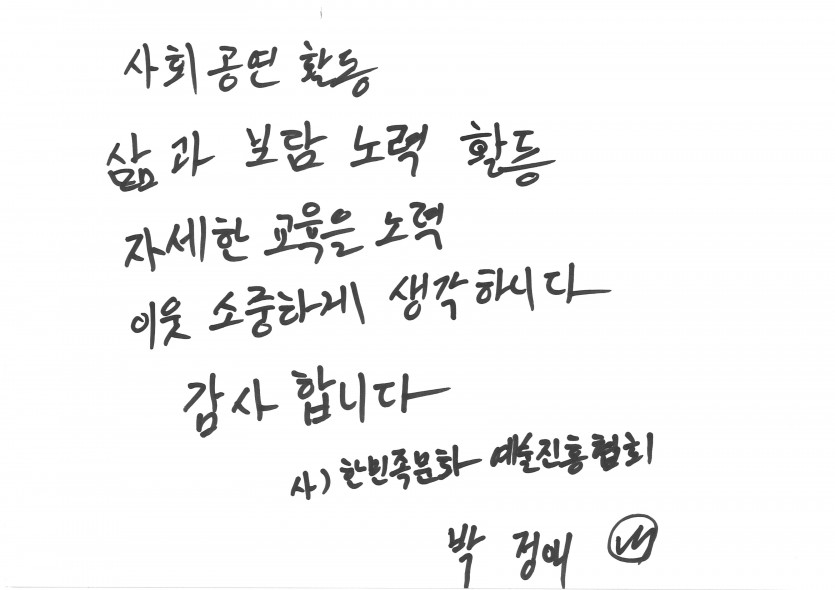 사회공연 활동
삶과 보담 노력 활동
자세한 교육을 노력
이웃 소중하게 생각하시다
감사 합니다
사) 한민족문화 예술진흥협회
박 정애